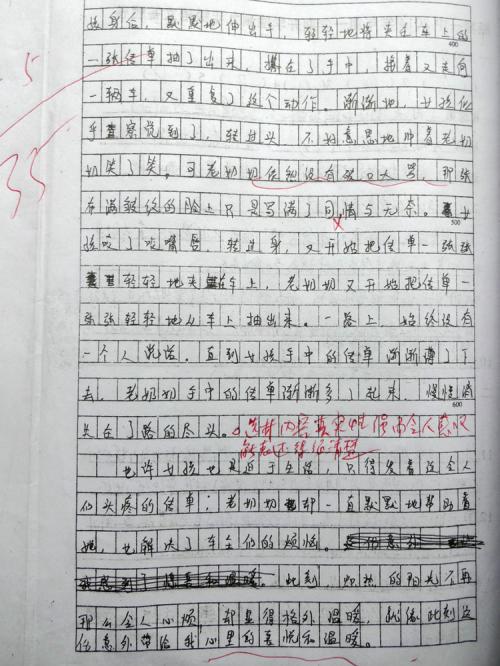 孩身后，默默地伸出手，轻轻地将夹在车上的
400
一张传单抽了出来，攥在了手中，接着又走向
一辆车，又重复了这个动作。渐渐地，女孩似
5
乎察觉到了，转过头，不好意思地冲着老奶
奶笑了笑。可老奶奶没有破口大骂，那张
35
布满皱纹的脸上只是写满了同情与无奈。女
500
孩咬了咬嘴唇，转过身，又开始把传单一张张
轻轻地夹在车上，老奶奶又开始把传单一
张张轻轻地从车上抽出来。一路上，始终没有
一个人说话。直到女孩手中的传单渐渐薄了下
去，老奶奶手中的传单渐渐多了起来，慢慢消
600
失在了路的尽头。
选材内容真实性强
也许女孩也是迫于生活，只得发着这令人
们头疼的传单；老奶奶却一直默默地帮助着
她，也解决了车主们的烦恼。
此刻，炽热的阳光不再
那么令人心烦，却显得格外温暖，就像此刻这
份意外带给我心里的喜悦和温暖。